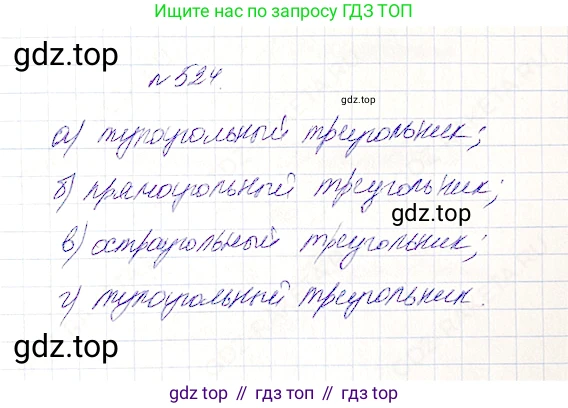 Ищите нас по запросу ГДЗ ТОП
gdz.top
№524.
gdz.top
а) тупоугольный треугольник;
б) прямоугольный треугольник;
gdz.top
в) остроугольный треугольник;
г) тупоугольный треугольник.
gdz.top
gdz.top // гдз топ // гдз.топ